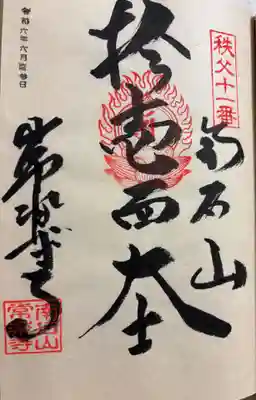 秩父十一番
南石山
拾壱面大士
令和六年六月
常楽寺
南石山
常樂寺